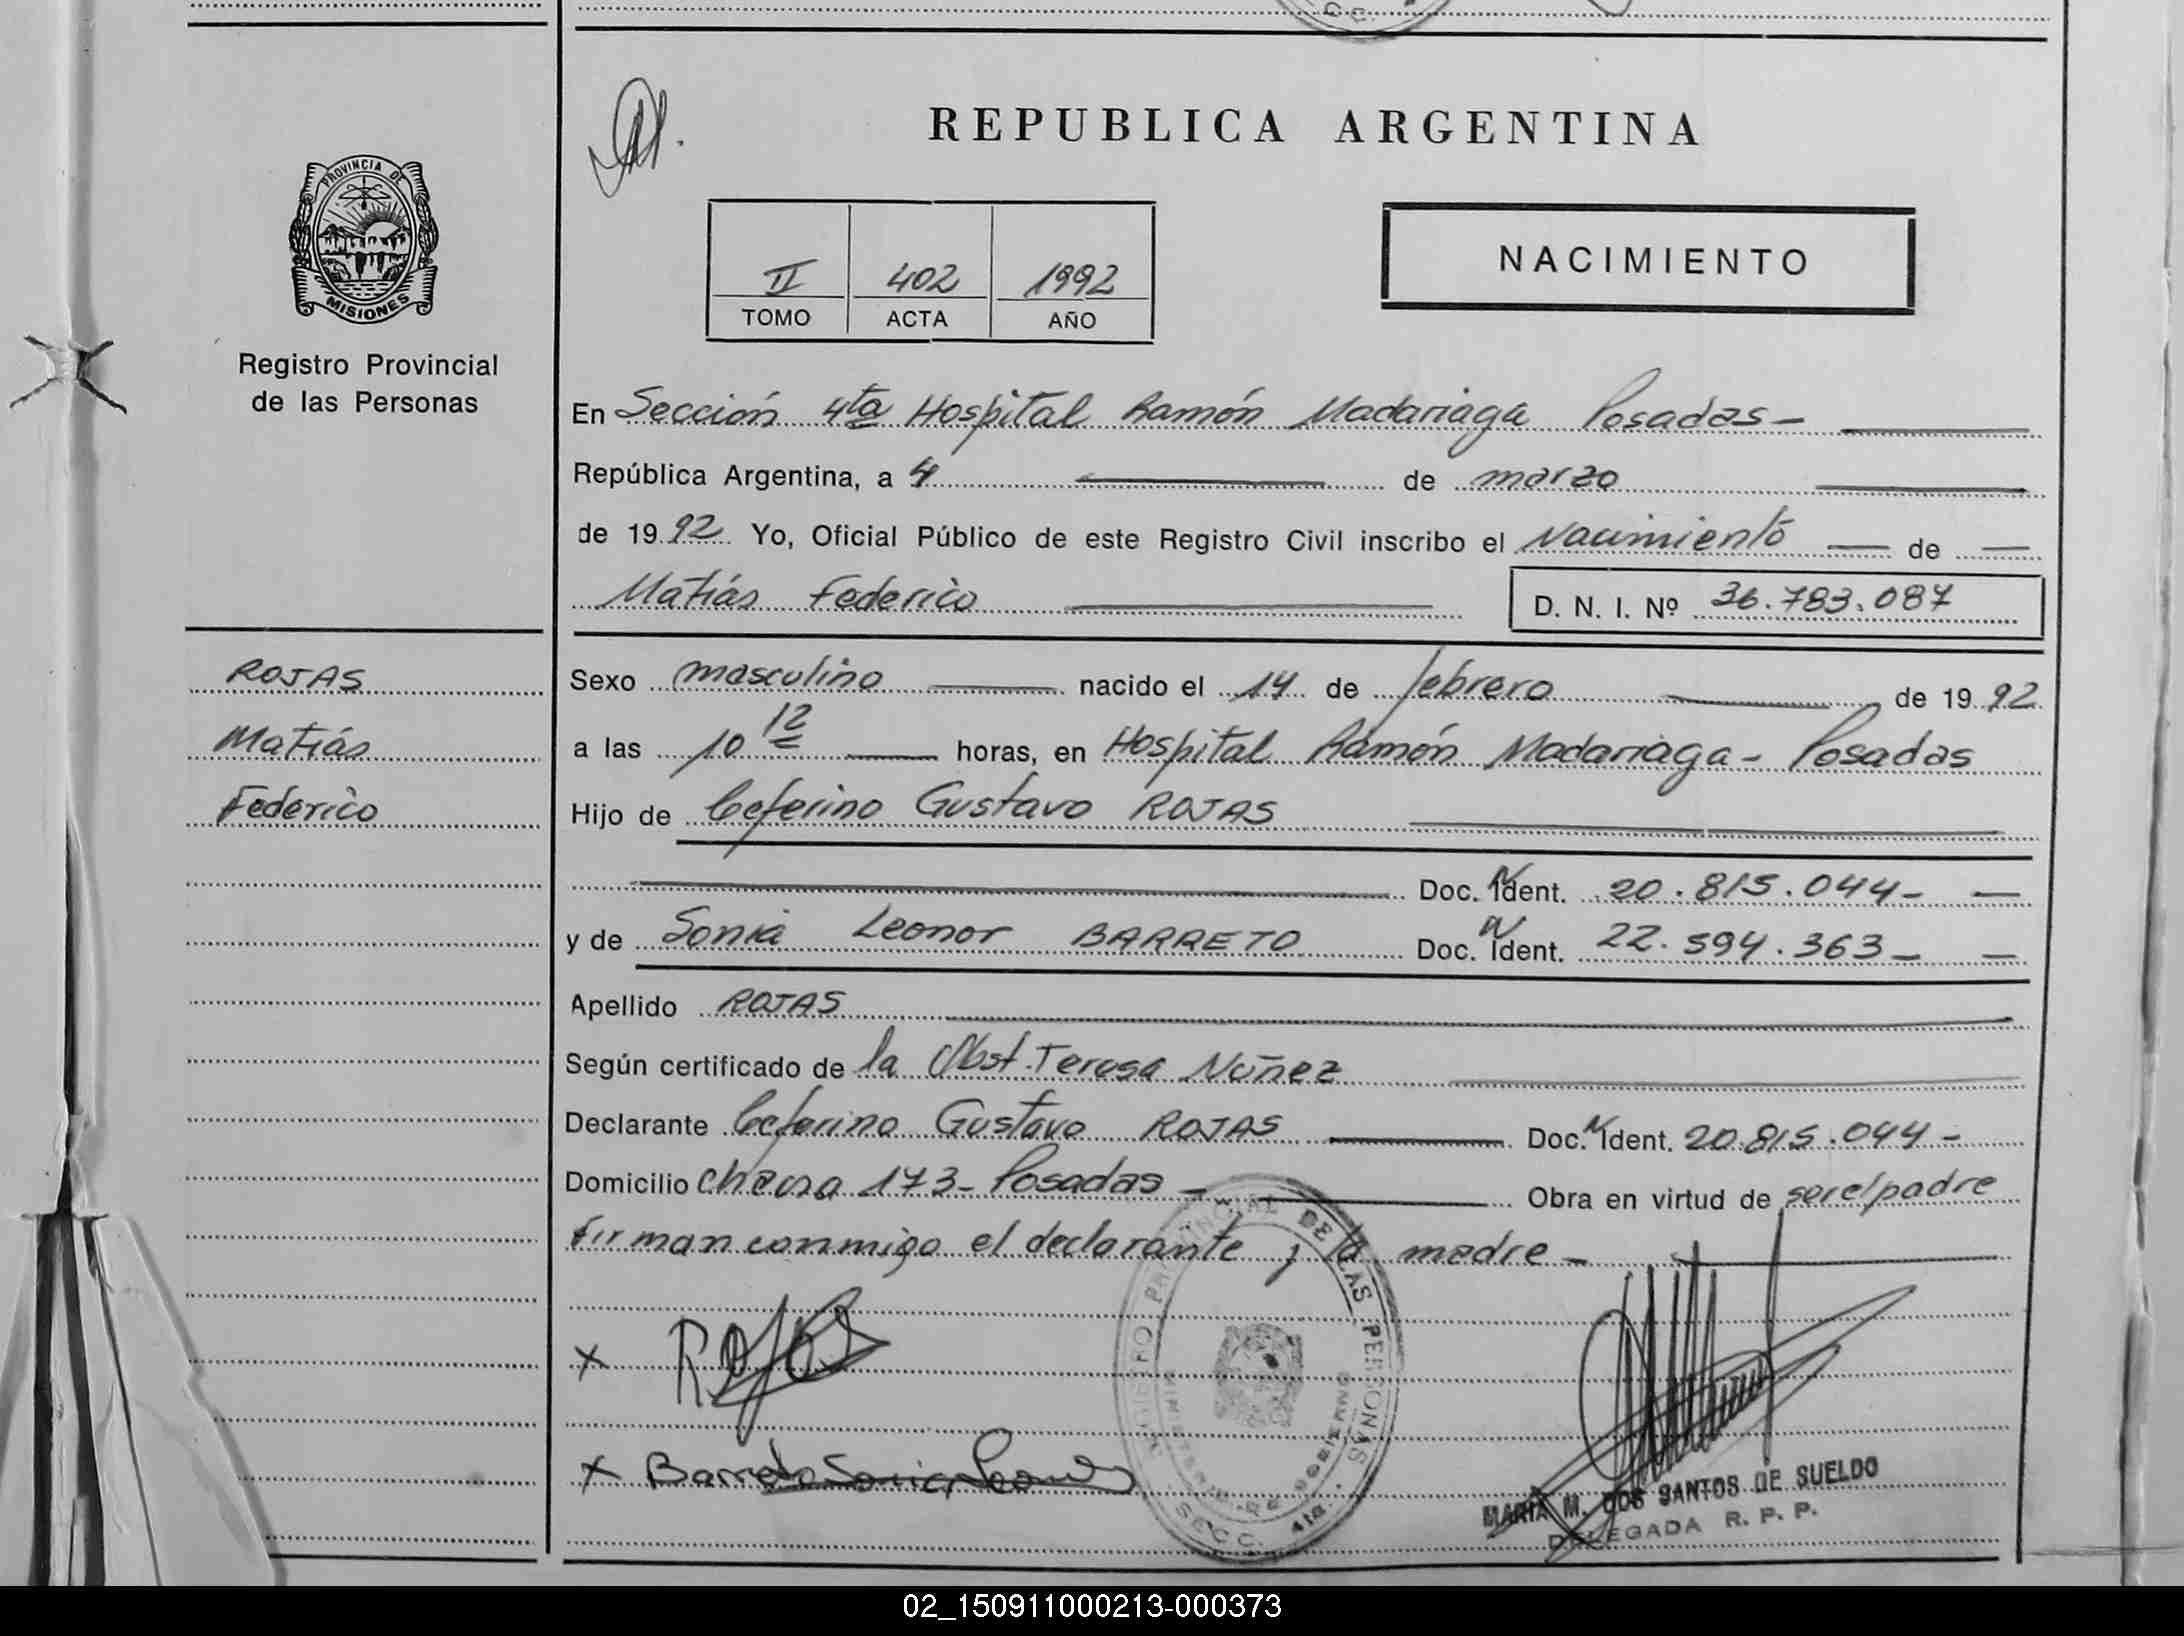 REPUBLICA ARGENTINA
PROVINCIA DE
MISIONES
Registro Provincial
de las Personas
II 402 1992
TOMO ACTA AÑO
NACIMIENTO
En Sección 4ta Hospital Ramón Madariaga Posadas -
República Argentina, a 4 de marzo
de 1992 Yo, Oficial Público de este Registro Civil inscribo el Nacimiento de
Matiás Federico D. N. I. Nº 36.783.087
ROJAS
Matiás
Federico
Sexo masculino nacido el 14 de febrero de 1992
a las 10 12 horas, en Hospital Ramón Madariaga - Posadas
Hijo de Ceferino Gustavo ROJAS
Doc. Ident. 20.815.044-
y de Sonia Leonor BARRETO Doc. Ident. 22.594.363-
Apellido ROJAS
Según certificado de la Obst. Teresa Núñez
Declarante Ceferino Gustavo ROJAS Doc. Ident. 20.815.044-
Domicilio Chacra 173- Posadas - Obra en virtud de ser el padre
Firman conmigo el declarante y la madre -
x Rojas
x Barreto Sonia Leonor
REGISTRO PROVINCIAL DE LAS PERSONAS
MINISTERIO DE GOBIERNO
SECC. 4ta.
MARIA M. DOS SANTOS DE SUELDO
DELEGADA R. P. P.
02_150911000213-000373